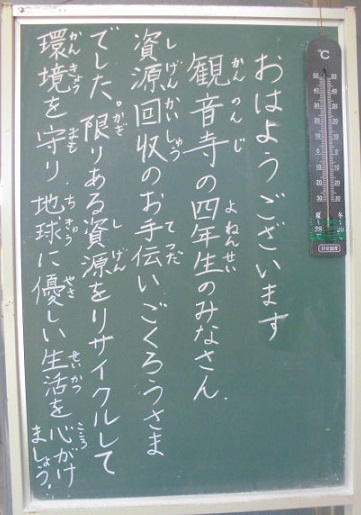 おはようございます
観音寺の四年生のみなさん
資源回収のお手伝いごくろうさま
でした。限りある資源をリサイクルして
環境を守り、地球に優しい生活を心がけ
ましょう。
かんのんじ
よねんせい
しげんかいしゅう
てつだ
かぎ
しげん
かんきょう
まも
ちきゅう
やさ
せいかつ
こころ
℃
50
40
30
20
10
0
10
20
30
夏
冬